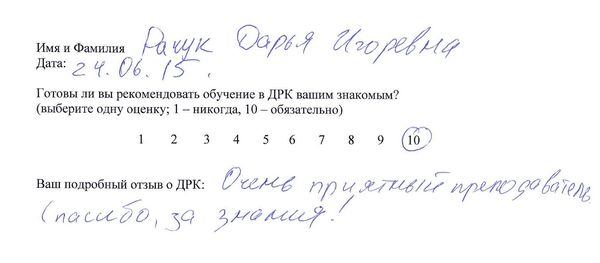 Имя и Фамилия Рачук Дарья Игоревна
Дата: 24.06.15.
Готовы ли вы рекомендовать обучение в ДРК вашим знакомым?
(выберите одну оценку; 1 – никогда, 10 – обязательно)
1 2 3 4 5 6 7 8 9 10
Ваш подробный отзыв о ДРК: Очень приятный преподаватель.
Спасибо, за знания!